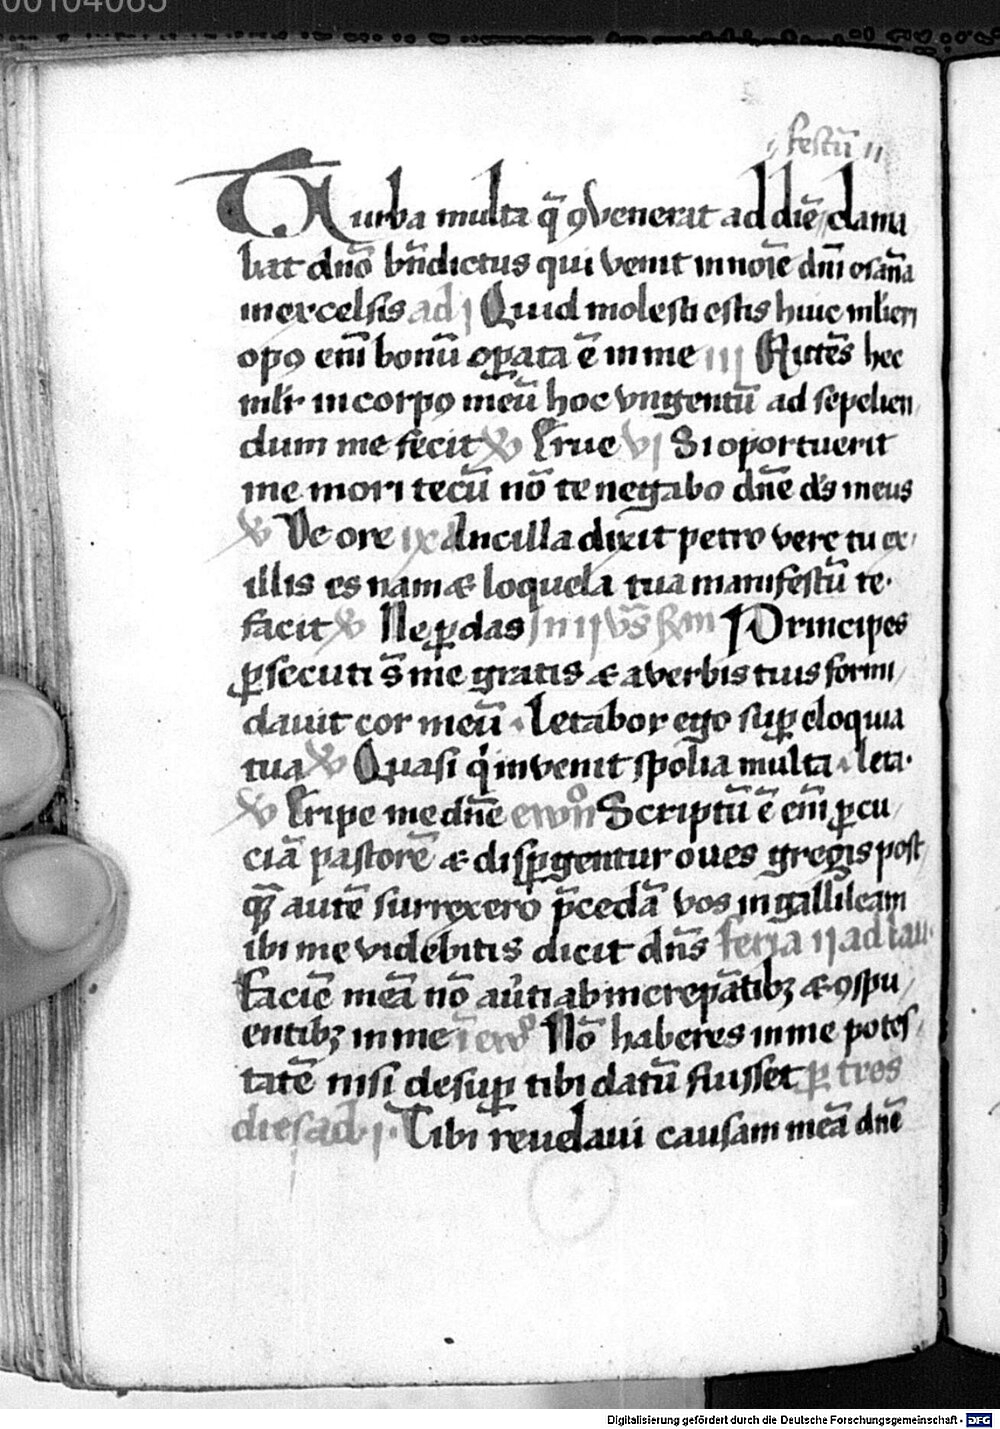 00104065
festū
Turba multa q̄ ꝯvenerat ad diē clama
bat dn̄o bn̄dictus qui venit in noīe dn̄i osan̄a
in excelsis ad j Quid molesti estis huic ml'ieri
opꝯ em̄ bonū oꝑata ē in me iij Mittēs hec
mlīr in corpꝯ meū hoc vngentū ad sepelien
dum me fecit ꝟ Erue vj Si oportuerit
me mori tecū nō te negabo dn̄e d's meus
ꝟ De ore ix Ancilla dixit petro vere tu ex
illis es nam & loquela tua manifestū te
facit ꝟ Ne ꝑdas In ij vs̄ Principes
ꝑsecuti s̄ me gratis & a verbis tuis formi
davit cor meū . Letabor ego suꝑ eloquia
tua ꝟ Quasi q' invenit spolia multa . leta.
ꝟ Eripe me dn̄e ewōn Scriptū ē em̄ ꝑcu
ciā pastorē & disꝑgentur oues gregis post
qꝫ autē surrexero p̄cedā vos in gallileam
ibi me videbitis dicit dn̄s feria ij ad lau
Faciē meā nō aūti ab increpātibꝫ & ꝯspu
entibꝫ in me ī ewº Nō haberes in me potes
tatē nisi desuꝑ tibi datū fuisset ꝑ tres
dies ad j. Tibi reuelaui causam meā dn̄e
Digitalisierung gefördert durch die Deutsche Forschungsgemeinschaft - DFG